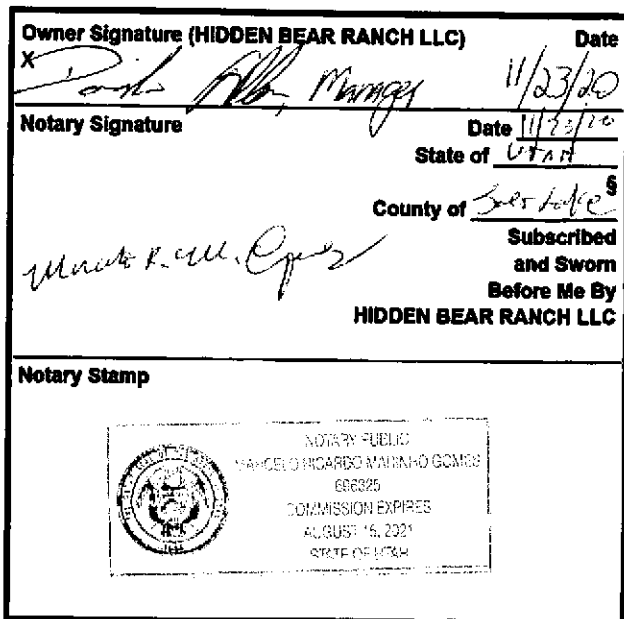 Owner Signature (HIDDEN BEAR RANCH LLC) Date
X Manager 11/23/20
Notary Signature Date 11/23/20
State of UTAH
§
County of Salt Lake
Subscribed
and Sworn
Before Me By
HIDDEN BEAR RANCH LLC
Notary Stamp
NOTARY PUBLIC
MARCELO RICARDO MARINHO GOMES
696325
COMMISSION EXPIRES
AUGUST 15, 2021
STATE OF UTAH